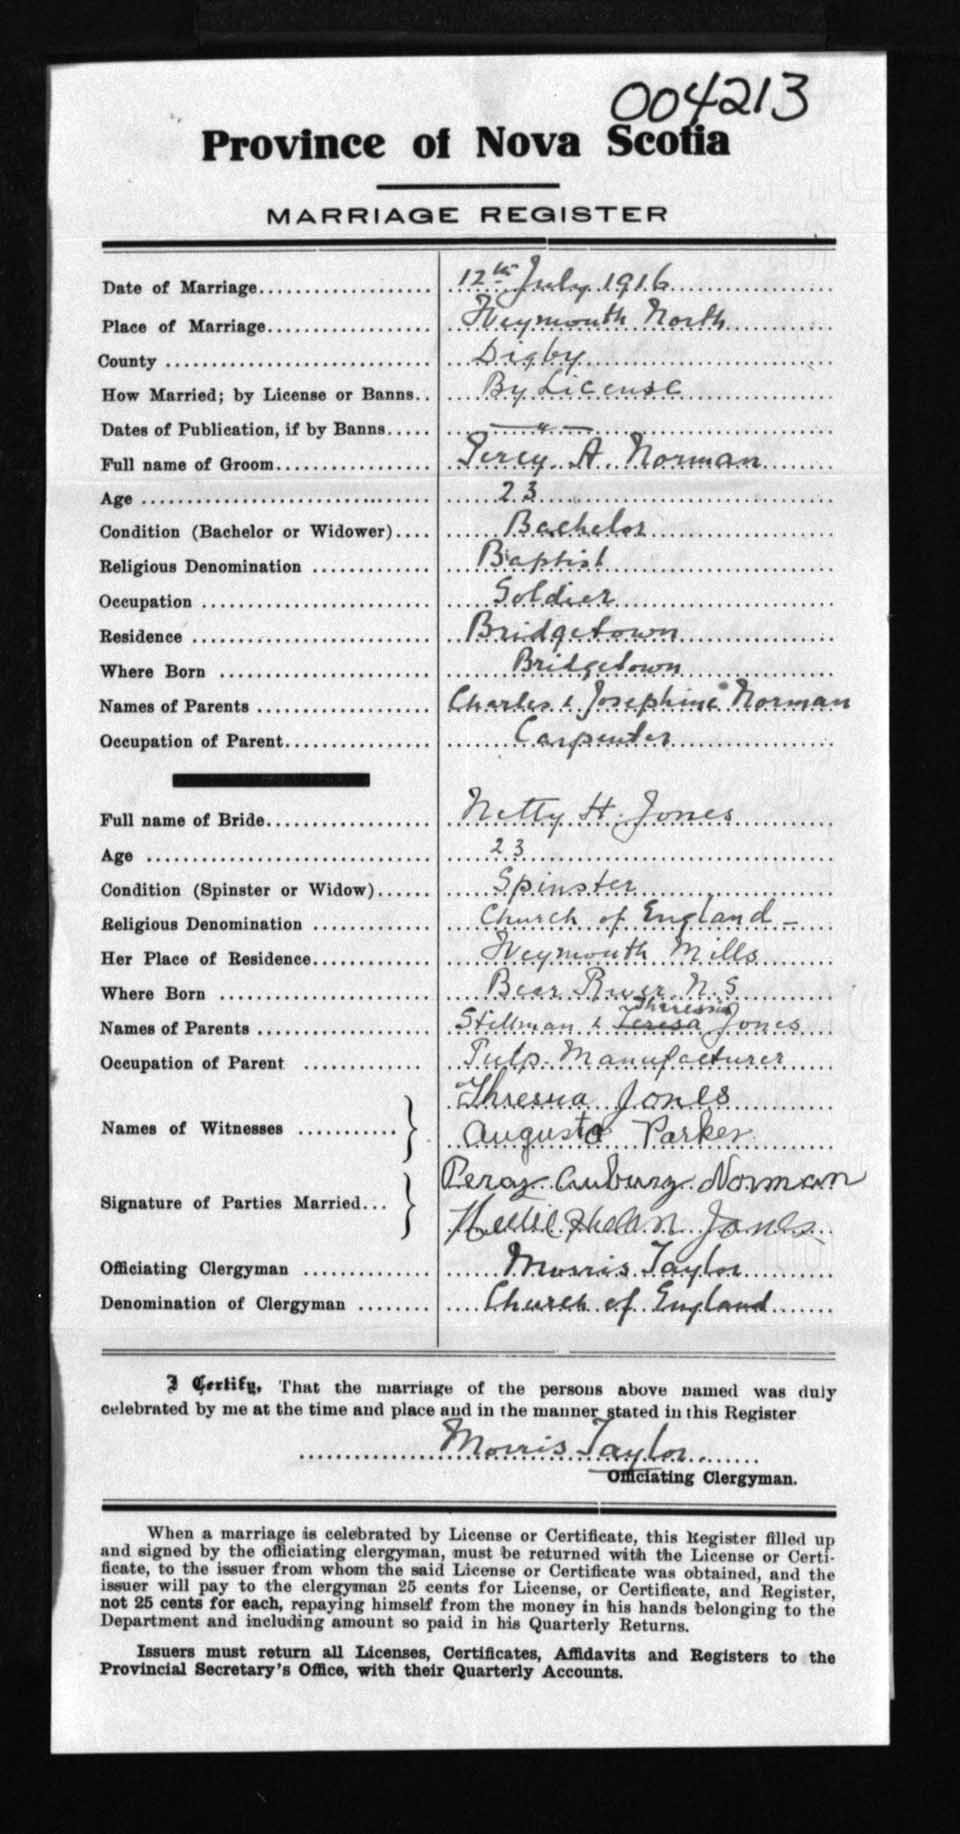 004213
Province of Nova Scotia
MARRIAGE REGISTER
Date of Marriage.................... 12th July 1916
Place of Marriage................... Weymouth North
County .............................. Digby
How Married; by License or Banns.. By License
Dates of Publication, if by Banns..... — " —
Full name of Groom.................. Percy A. Norman
Age ................................ 23
Condition (Bachelor or Widower).... Bachelor
Religious Denomination ............. Baptist
Occupation ......................... Soldier
Residence .......................... Bridgetown
Where Born ....................... Bridgetown
Names of Parents ................... Charles & Josephine Norman
Occupation of Parent................ Carpenter
Full name of Bride................... Netty H. Jones
Age ................................ 23
Condition (Spinster or Widow)...... Spinster
Religious Denomination ............. Church of England –
Her Place of Residence............. Weymouth Mills
Where Born ....................... Bear River N.S
Threresia
Names of Parents ................... Stillman & Teresa Jones
Occupation of Parent ............. Pulp Manufacturer
Jones
Names of Witnesses ........... Augusta Parker
Percy Norman
Signature of Parties Married...
Jones
Officiating Clergyman .............. Morris Taylor
Denomination of Clergyman ........ Church of England
I Certify, That the marriage of the persons above named was duly
celebrated by me at the time and place and in the manner stated in this Register
Morris Taylor
Officiating Clergyman.
When a marriage is celebrated by License or Certificate, this Register filled up
and signed by the officiating clergyman, must be returned with the License or Certi-
ficate, to the issuer from whom the said License or Certificate was obtained, and the
issuer will pay to the clergyman 25 cents for License, or Certificate, and Register,
not 25 cents for each, repaying himself from the money in his hands belonging to the
Department and including amount so paid in his Quarterly Returns.
Issuers must return all Licenses, Certificates, Affidavits and Registers to the
Provincial Secretary's Office, with their Quarterly Accounts.